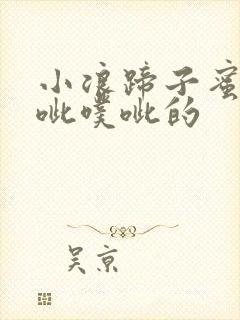 小浪蹄子蜜
呲噗呲的
吴京